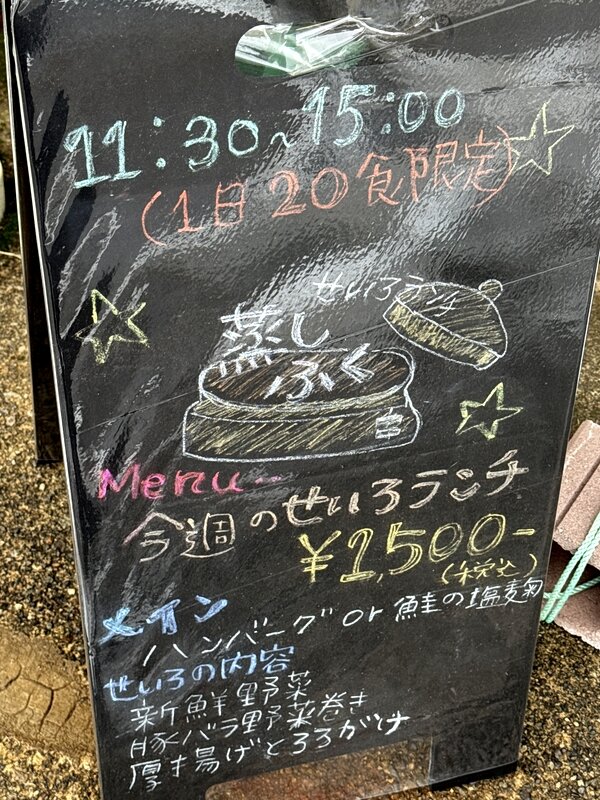 11:30~15:00
(1日20食限定)
せいろランチ
蒸し
ふく
Menu…
今週のせいろランチ
¥1,500-
(税込)
メイン
ハンバーグ or 鮭の塩麹
せいろの内容
新鮮野菜
豚バラ野菜巻き
厚揚げとろろがけ